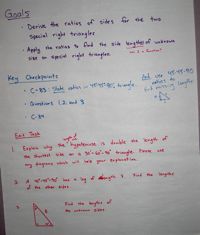 Goals
· Derive the ratios of sides for the two
special right triangles
· Apply the ratios to find the side lengths of unknown
sides on special right triangles
Key Checkpoints
· C-83 State ratios in 45°-45°-90° triangle.
And use 45-45-90
ratios to
find missing lengths
· Questions 1, 2 and 3
· C-84
Exit Task
1. Explain why the hypotenuse is double the length of
the shortest side on a 30°-60°-90° triangle. Please use
any diagrams which will help your explanation.
2. A 45°-45°-90° has a leg of length 3. Find the lengths
of the other sides
3.
Find the lengths of
the unknown sides